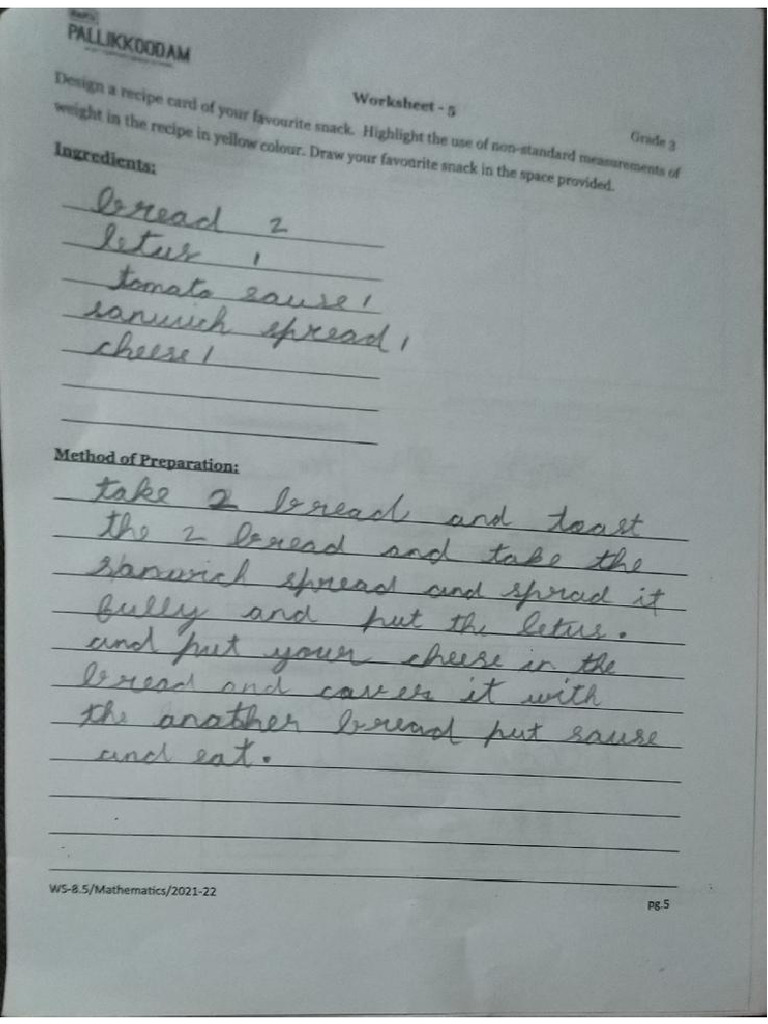 PALLIKKOODAM
Worksheet - 5
Grade 3
Design a recipe card of your favourite snack. Highlight the use of non-standard measurements of
weight in the recipe in yellow colour. Draw your favourite snack in the space provided.
Ingredients:
bread 2
letus 1
tomato sause 1
sanwich spread 1
cheese 1
Method of Preparation:
take 2 bread and toast
the 2 bread and take the
sanwich spread and sprad it
fully and put the letus.
and put your cheese in the
bread and caver it with
the another bread put sause
and eat.
WS-8.5/Mathematics/2021-22
pg.5